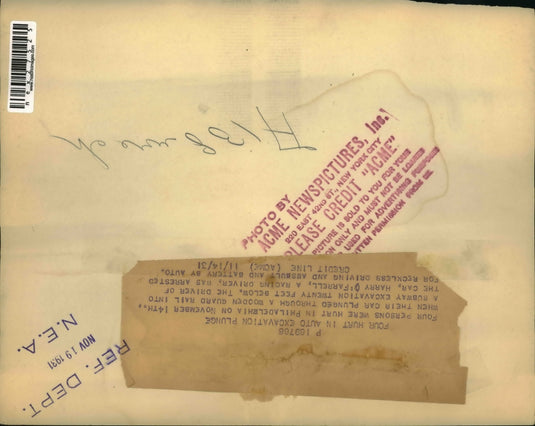 PHOTO BY
ACME NEWSPICTURES, Inc.
220 EAST 42ND ST., NEW YORK CITY
PLEASE CREDIT "ACME"
PICTURE IS SOLD TO YOU FOR YOUR
ON ONLY AND MUST NOT BE LOANED
USED FOR ADVERTISING PURPOSES
WRITTEN PERMISSION FROM US.
P 169766
FOUR HURT IN AUTO EXCAVATION PLUNGE
FOUR PERSONS WERE HURT IN PHILADELPHIA ON NOVEMBER 14TH.,
WHEN THEIR CAR PLUNGED THROUGH A WOODEN GUARD RAIL INTO
A SUBWAY EXCAVATION TWENTY FEET BELOW. THE DRIVER OF
THE CAR, HARRY O'FARRELL, A RACING DRIVER, WAS ARRESTED
FOR RECKLESS DRIVING AND ASSAULT AND BATTERY BY AUTO.
CREDIT LINE (ACME) 11/14/31
REF. DEPT.
NOV 19 1931
N.E.A.